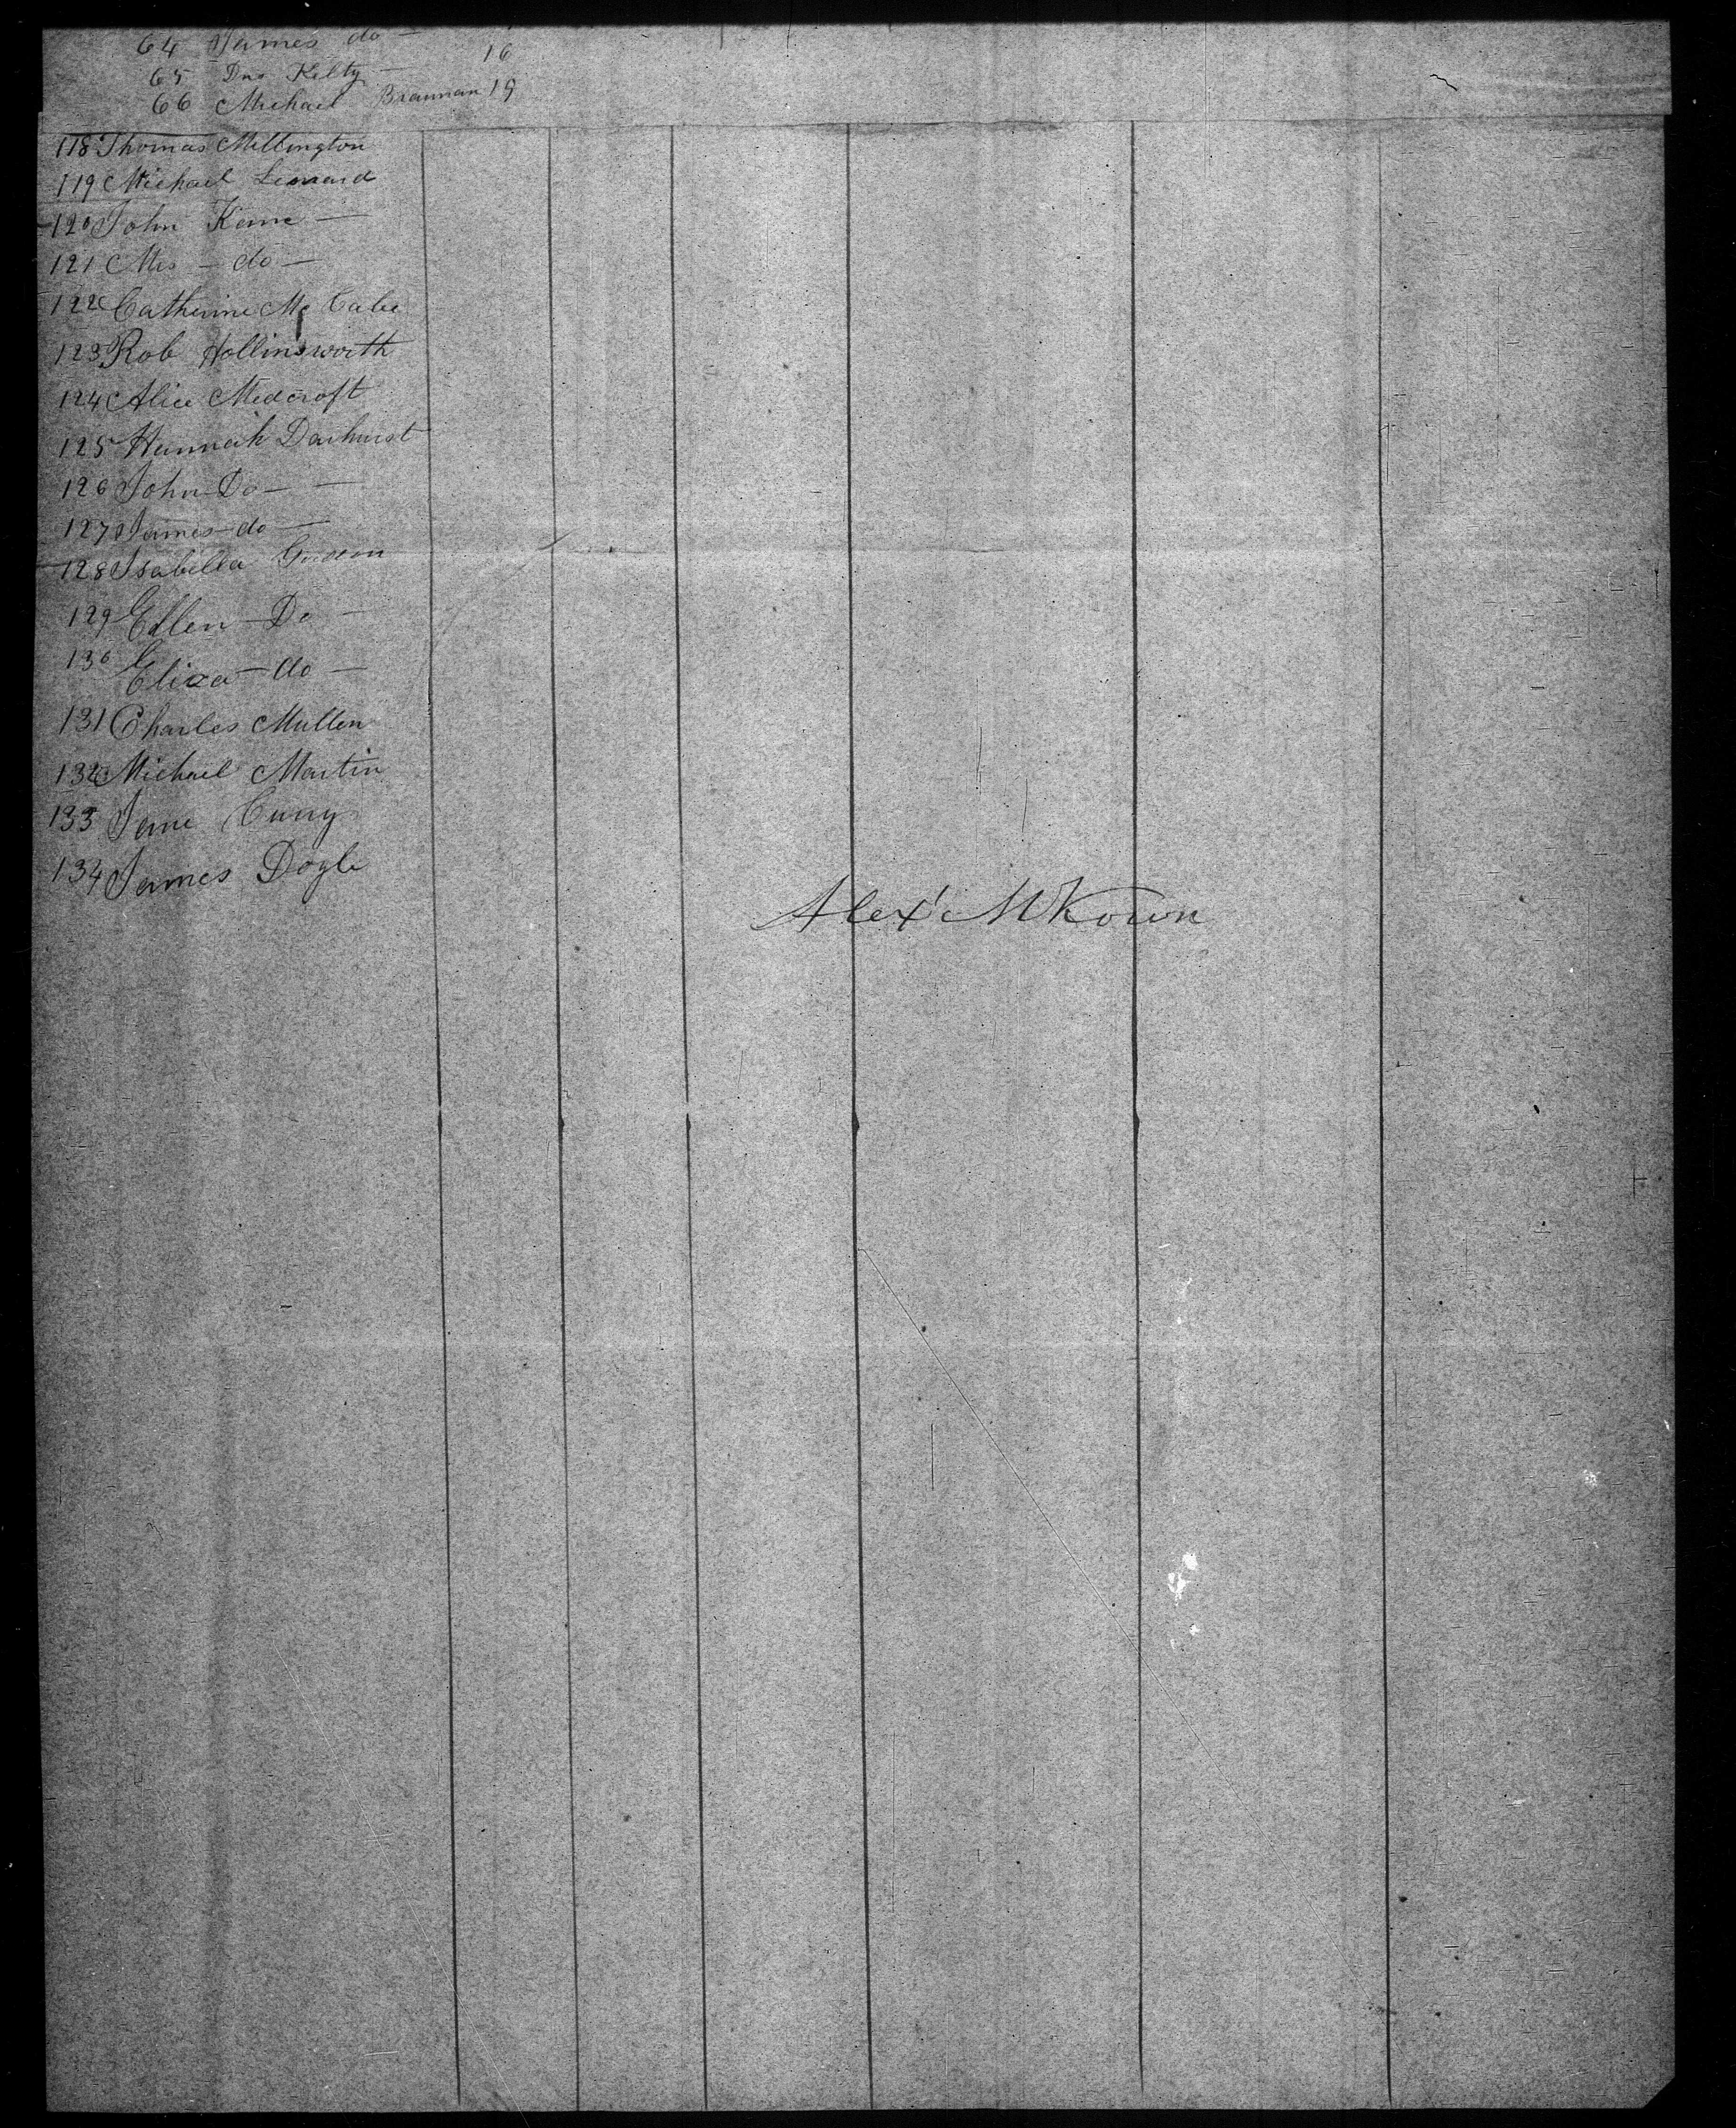 64 James do —
65 Dns Kelty — 16
66 Michael Brannan 19
118 Thomas Millington
119 Michael Leonard
120 John Kane —
121 Mrs — do —
122 Catherine Mc Cabe
123 Rob Hollinsworth
124 Alice Medcroft
125 Hannah Darhurst
126 John Do — —
127 James do —
128 Isabella
129 Ellen Do —
130 Eliza — do —
131 Charles Mullen
132 Michael Martin
133 Jane Curry
134 James Doyle
Alexr McKown